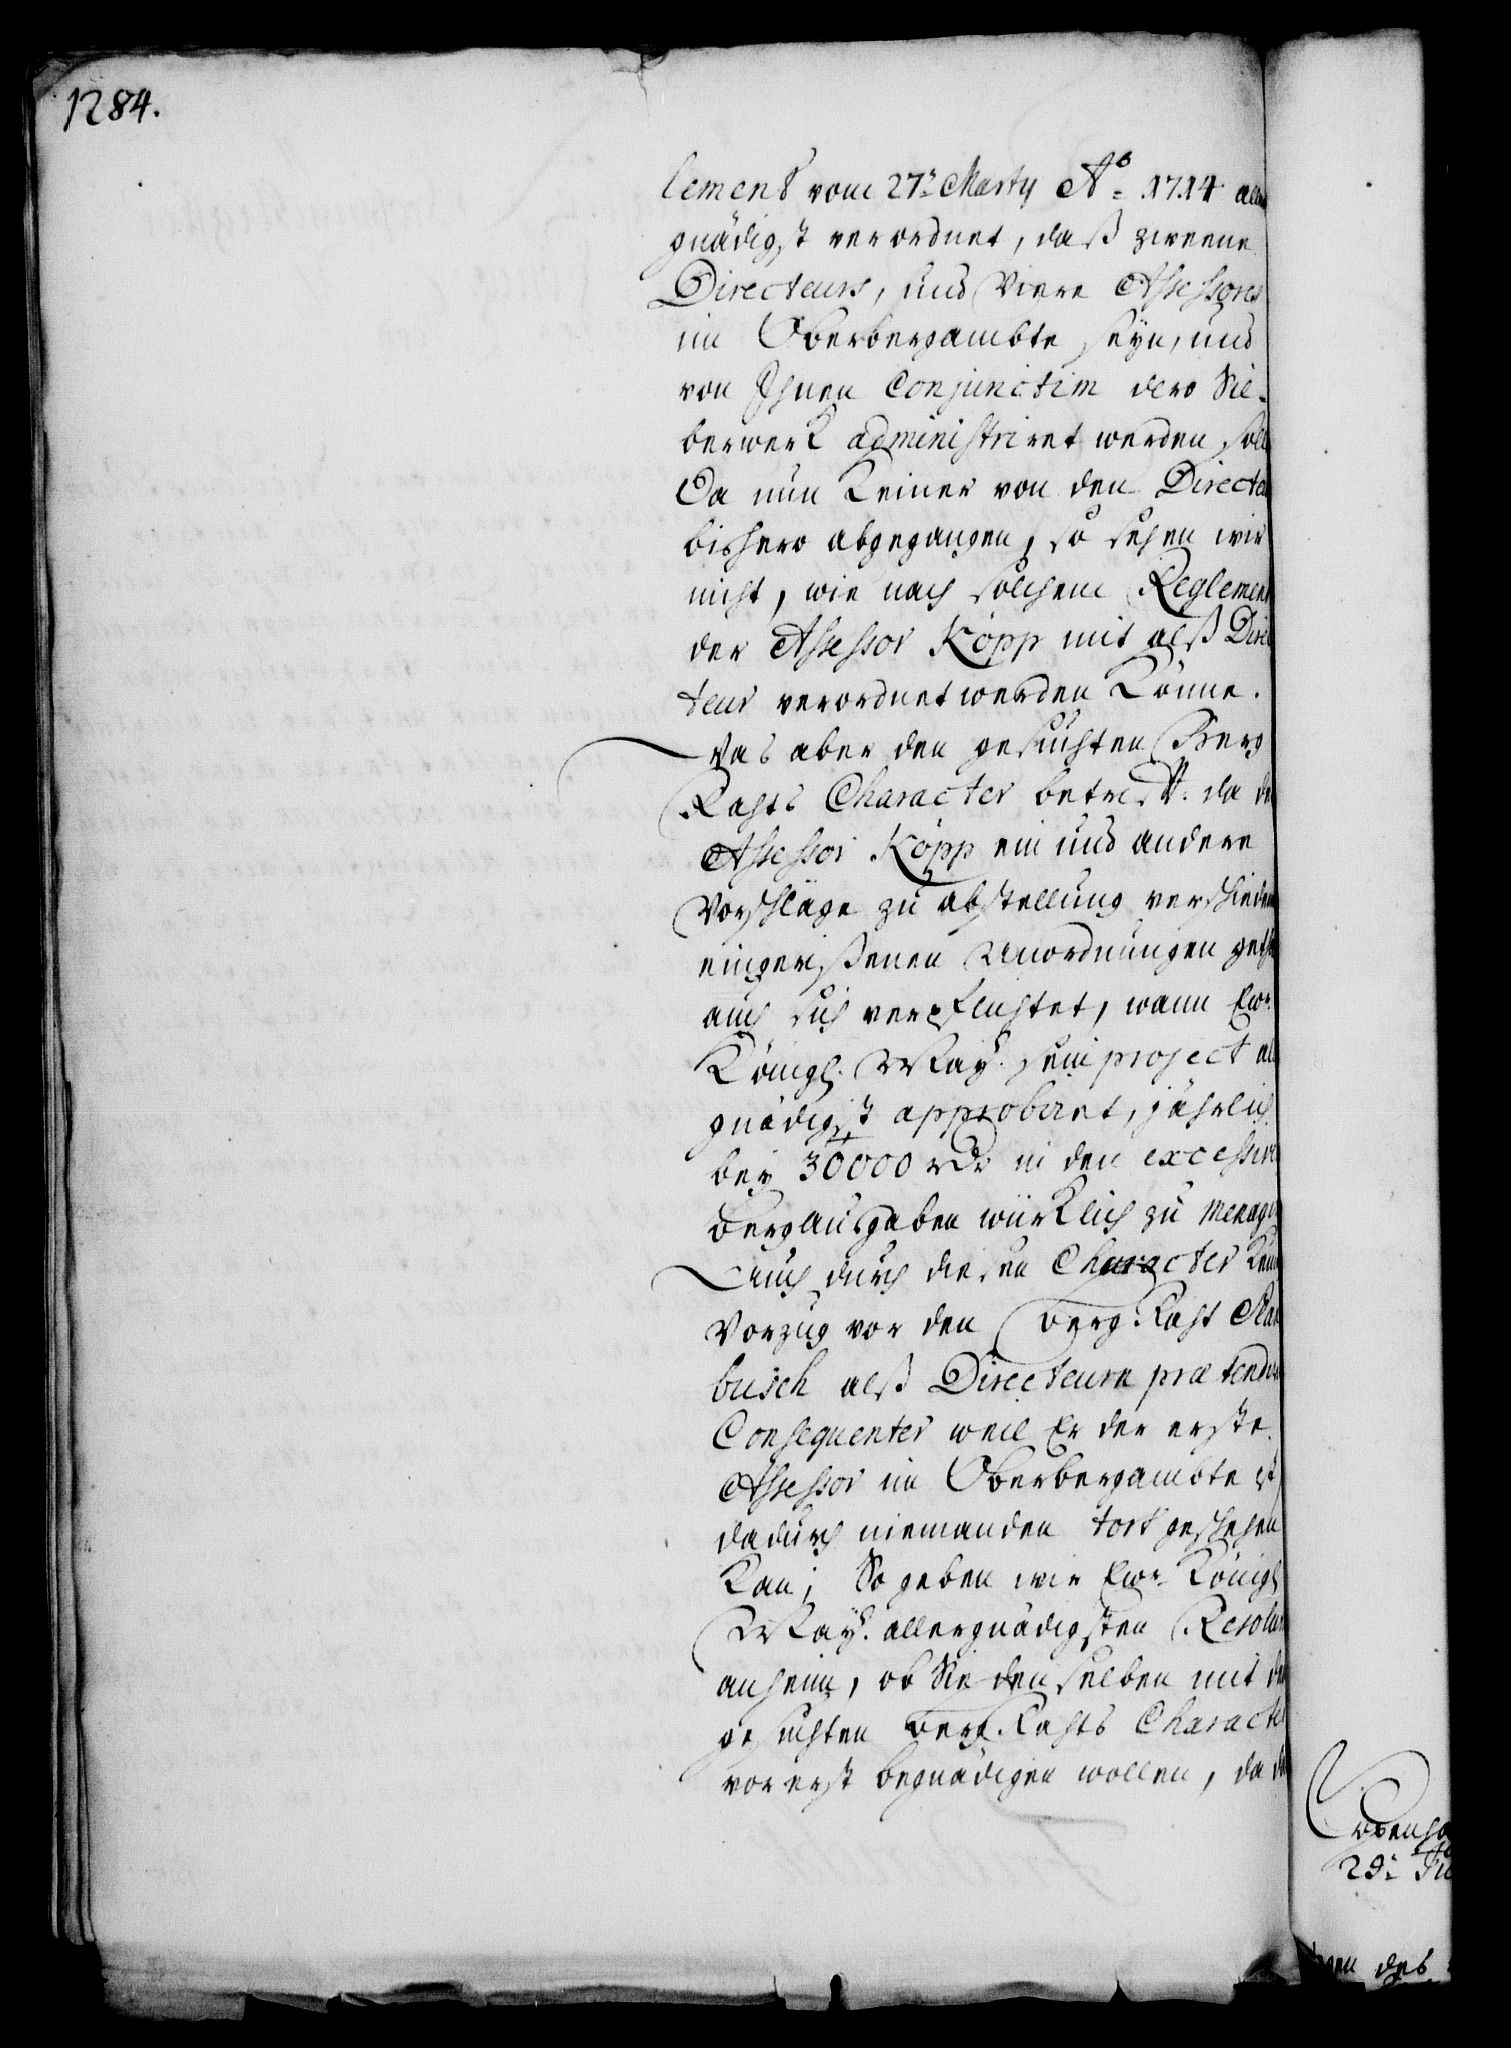 1284.
lements vom 27:n Marty Ao: 1714 aller
gnädigst verordnet, daß zweene
Directeurs, und Viere Assessores
im Oberbergambte seyn, und
von Ihnen Conjunctim dero Sil-
berwerk administriret werden soll
Da nun Keiner von den Directeu
bishero abgegangen, so sehen wir
nicht, wie nach solchem Reglement
der Assessor Köpp mit alß Direc
teur verordnet werden Könne.
Was aber den gesuchten Berg
Rahts Character betrifft. da de
Assessor Köpp ein und andere
Vorschläge zu abstellung verschieden
eingerißenen Unordnungen geth
auch sich verpflichtet, wann Ewr.
Königl. May. sein project all
gnädigst approbiret, jährlich
bey 30000 rdr in den excessiven
Bergausgaben würklich zu menagi
Auch durch diesen Character Kein
Vorzug vor den Berg Raht
busch alß Directeurn prætendir
Consequenter weil Er der erste
Assessor im Oberbergambte ist
dadurch niemanden tort geschehen
Kan; So geben wir Ewr. Königl
May. allergnädigsten Resolut
anheim, ob Sie denselben mit de
gesuchten Berg Rahts Character
vorerst begnädigen wollen, da d
29:
des